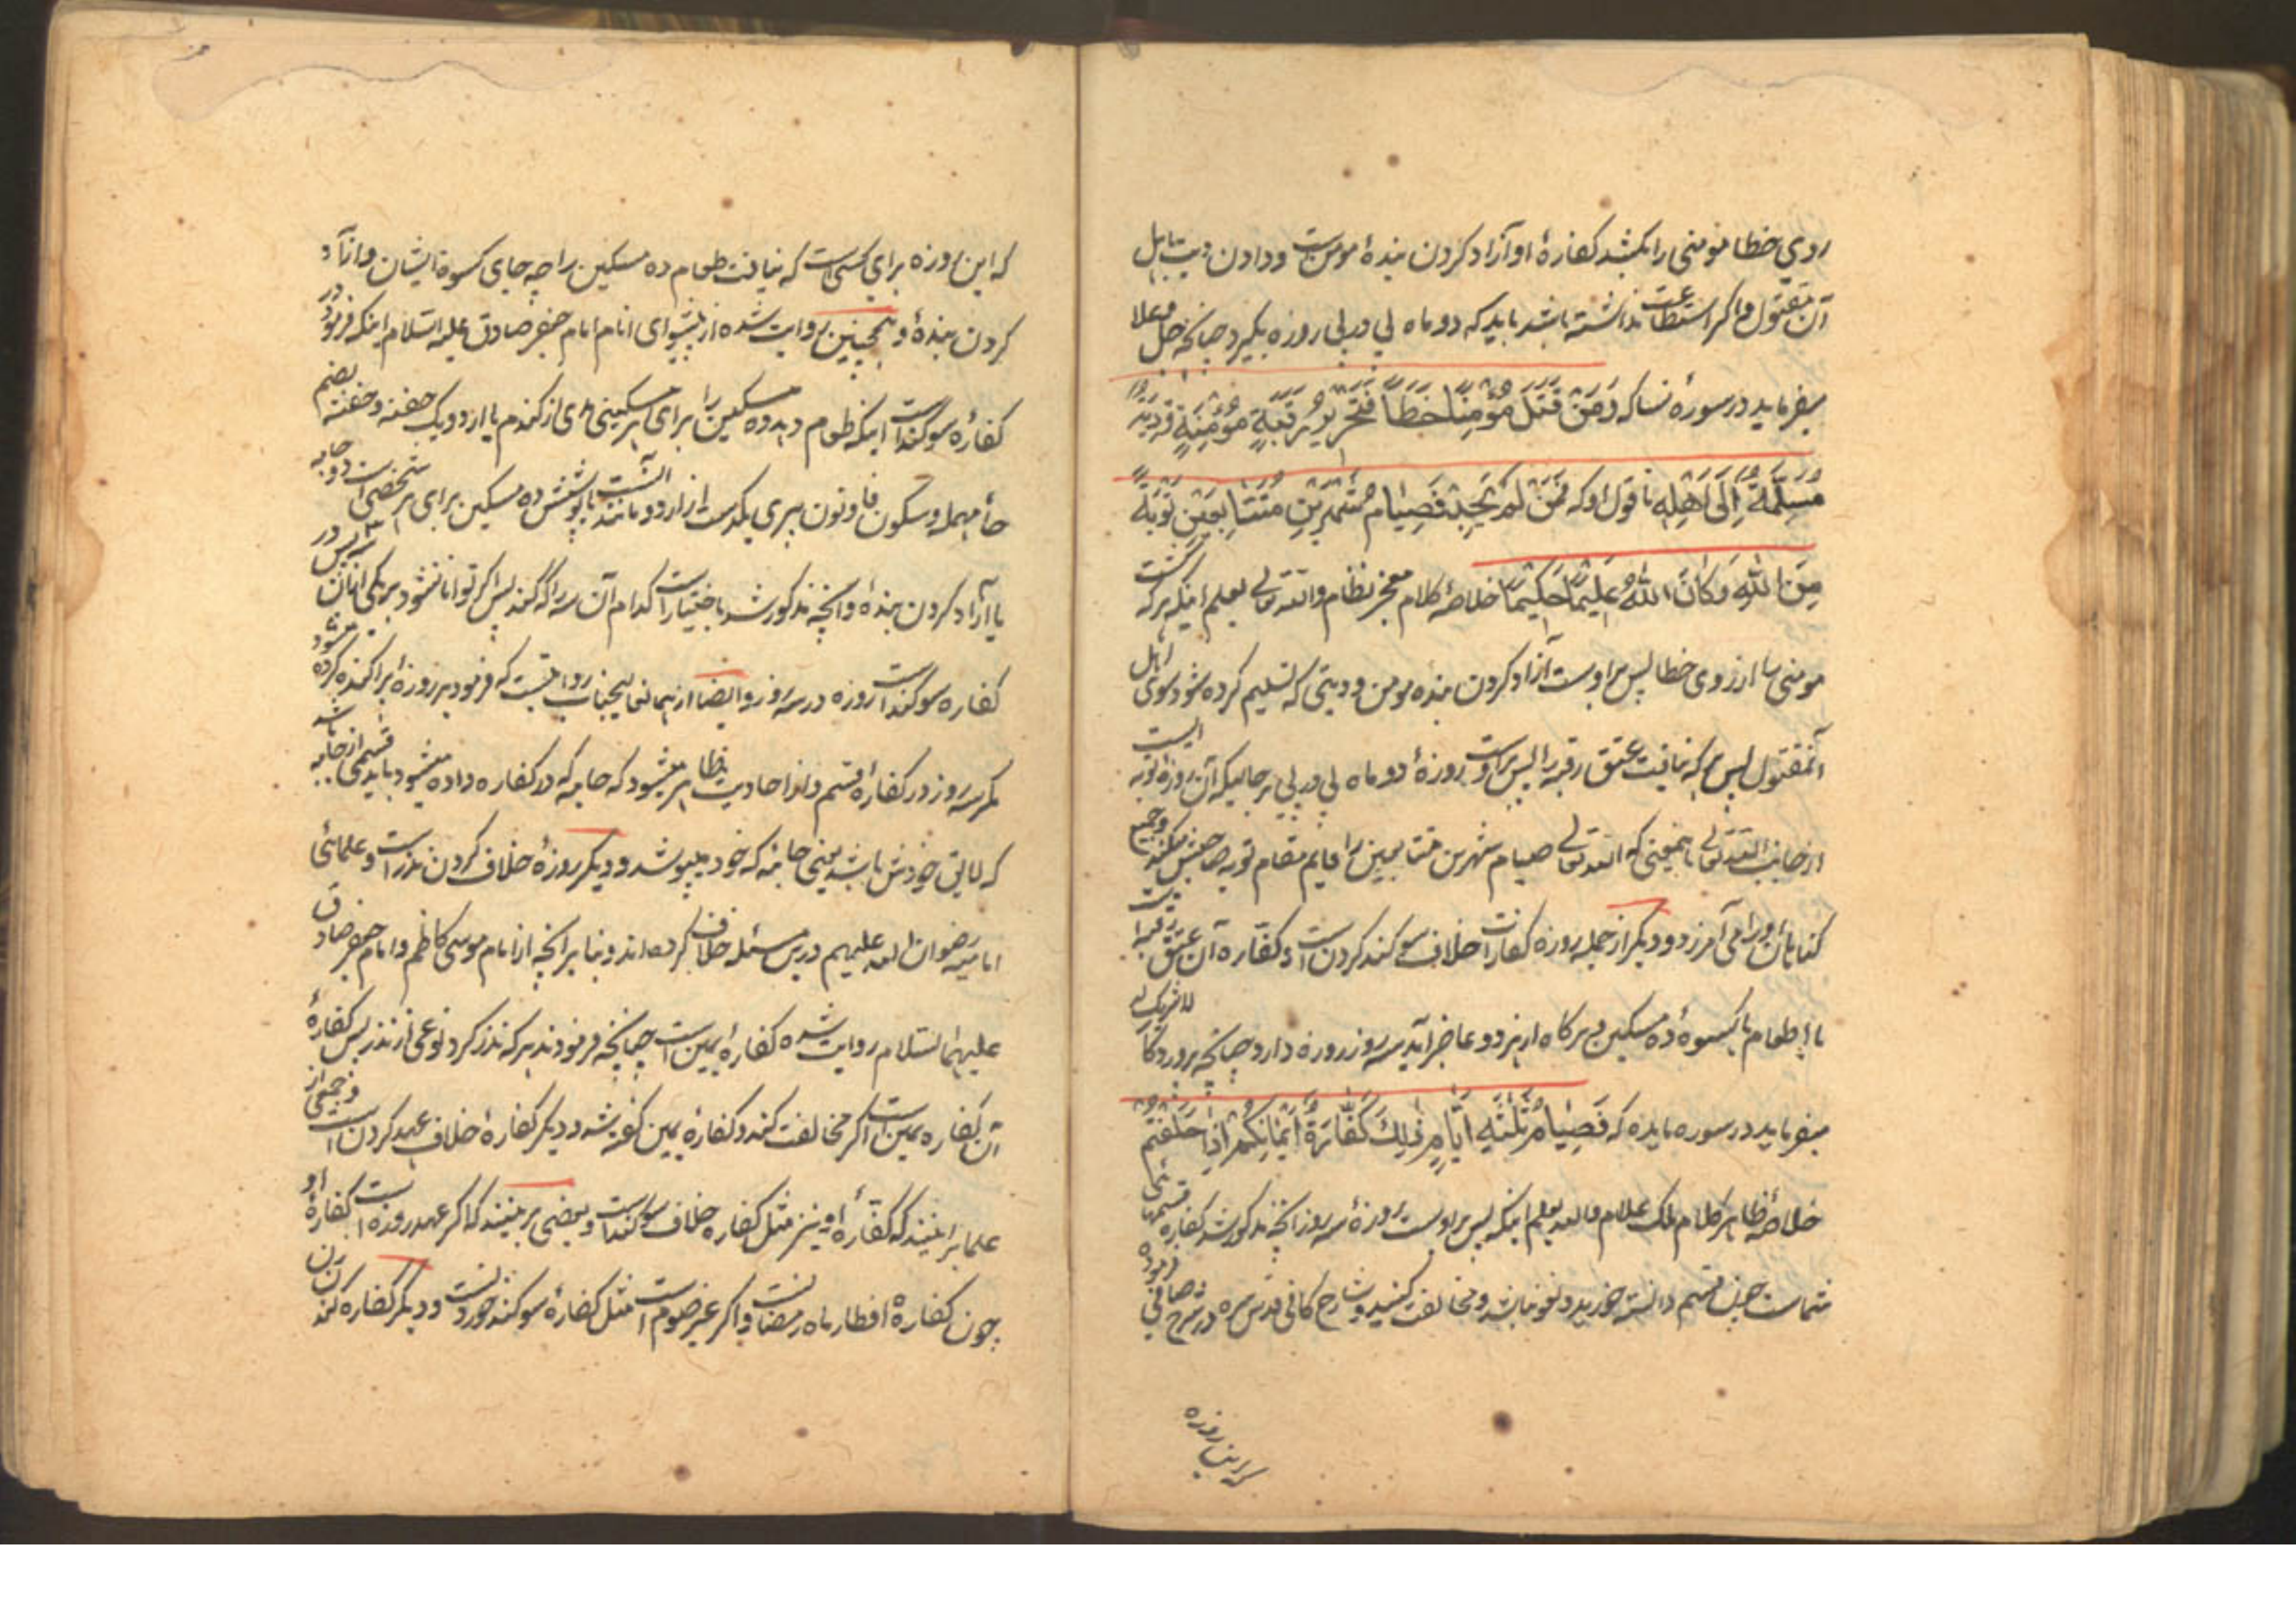 روی خطا مؤمنی را بکشد کفارهٔ او آزاد کردن بندهٔ مومن است و دادن دیت باهل
آن مقتول و اگر استطاعت نداشته باشد باید که دو ماه پی در پی روزه بگیرد چنانچه جل و علا
میفرماید در سورهٔ نسا که وَمَنْ قَتَلَ مُؤْمِنًا خَطَأً فَتَحْرِيرُ رَقَبَةٍ مُؤْمِنَةٍ وَدِيَةٌ
مُسَلَّمَةٌ إِلَى أَهْلِهِ تا قول او که فَمَنْ لَمْ يَجِدْ فَصِيَامُ شَهْرَيْنِ مُتَتَابِعَيْنِ تَوْبَةً
مِنَ اللهِ وَكَانَ اللهُ عَلِيمًا حَكِيمًا خلاصهٔ کلام معجز نظام والله تعالی یعلم اینکه هر که کشت
مومنی را از روی خطا پس بر اوست آزاد کردن بنده مومن و دیتی که تسلیم کرده شود سوی اهل
آنمقتول پس هر که نیافت عتق رقبه را پس بر اوست روزهٔ دو ماه پی در پی بر حالیکه آن روزه توبه ایست
از جانب الله تعالی باینمعنی که الله تعالی صیام شهرین متتابعین را قایم مقام توبه صاحبش میکند و جمیع
گناهان او را می آمرزد و دیگر از جمله روزه کفارات خلاف سوگند کردن است و کفاره آن عتق رقبه است
یا اطعام یا کسوهٔ ده مسکین و هرگاه از هر دو عاجز آید سه روز روزه دارد چنانچه پروردگار لا شریک له
میفرماید در سوره مایده که فَصِيَامُ ثَلٰثَةِ أَيَّامٍ ذٰلِكَ كَفَّارَةُ أَيْمَانِكُمْ إِذَا حَلَفْتُمْ
خلاصهٔ ظاهر کلام ملک علام والله یعلم اینکه پس بر اوست روزهٔ سه روز آنچه مذکور شد کفاره قسمهای
شماست چون قسم دانسته خورید و لغو نباشد و مخالفت کنید و شارح کافی قدس سره در شرح صافی فرموده
که این روزه
که این روزه برای کسی است که نیافت طعام ده مسکین را چه جای کسوة ایشان و آزاد
کردن بندهٔ و همچنین روایت شده از پیشوای انام امام جعفر صادق علیه السلام اینکه فرمود در
کفارهٔ سوگند است اینکه طعام دهد ده مسکین را برای هر مسکینی مدی از گندم یا ارد و یک حفنه و حفنه بضم
حاء مهمله و سکون فا و نون پری یکدست از ارد و مانند آنست یا پوشش ده مسکین برای هر شخصی است دو جامه
یا آزاد کردن بندهٔ و آنچه مذکور شد باختیار است کدام آن سه را که کند پس اگر توانا نشود بر یکی از آن سه پس در
کفاره سوگند است روزه در سه روز و ایضا از همانعالیجناب روایتست که فرمود هر روزهٔ پراکنده کرده میشود
مگر سه روز در کفارهٔ قسم و از احادیث ظاهر میشود که جامه که در کفاره داده میشود باید قسمی از جامه باشد
که لایق خودش باشد یعنی جامهٔ که خود میپوشد و دیگر روزهٔ خلاف کردن نذر است و علمای
امامیه رضوان الله علیهم درین مسئله خلاف کرده اند و بنا بر آنچه از امام موسی کاظم و امام جعفر صادق
علیهما السلام روایت شده کفاره یمین است چنانچه فرمودند هر که نذر کرد نوعی از نذر پس کفارهٔ
آن کفاره یمین است اگر مخالفت کند و کفارهٔ یمین گفته شد و دیگر کفارهٔ خلاف عهد کردن است و جمعی از
علما بر اینند که کفارهٔ او نیز مثل کفاره خلاف سوگند است و بعضی بر اینند که اگر عهد روزه است کفارهٔ او
چون کفارهٔ افطار ماه رمضانست و اگر غیر صوم است مثل کفارهٔ سوگند خوردنست و دیگر کفاره کندن